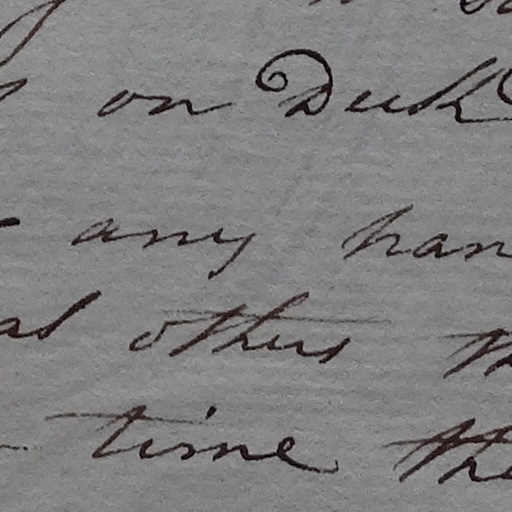 on Duck
any han
as others th
time the